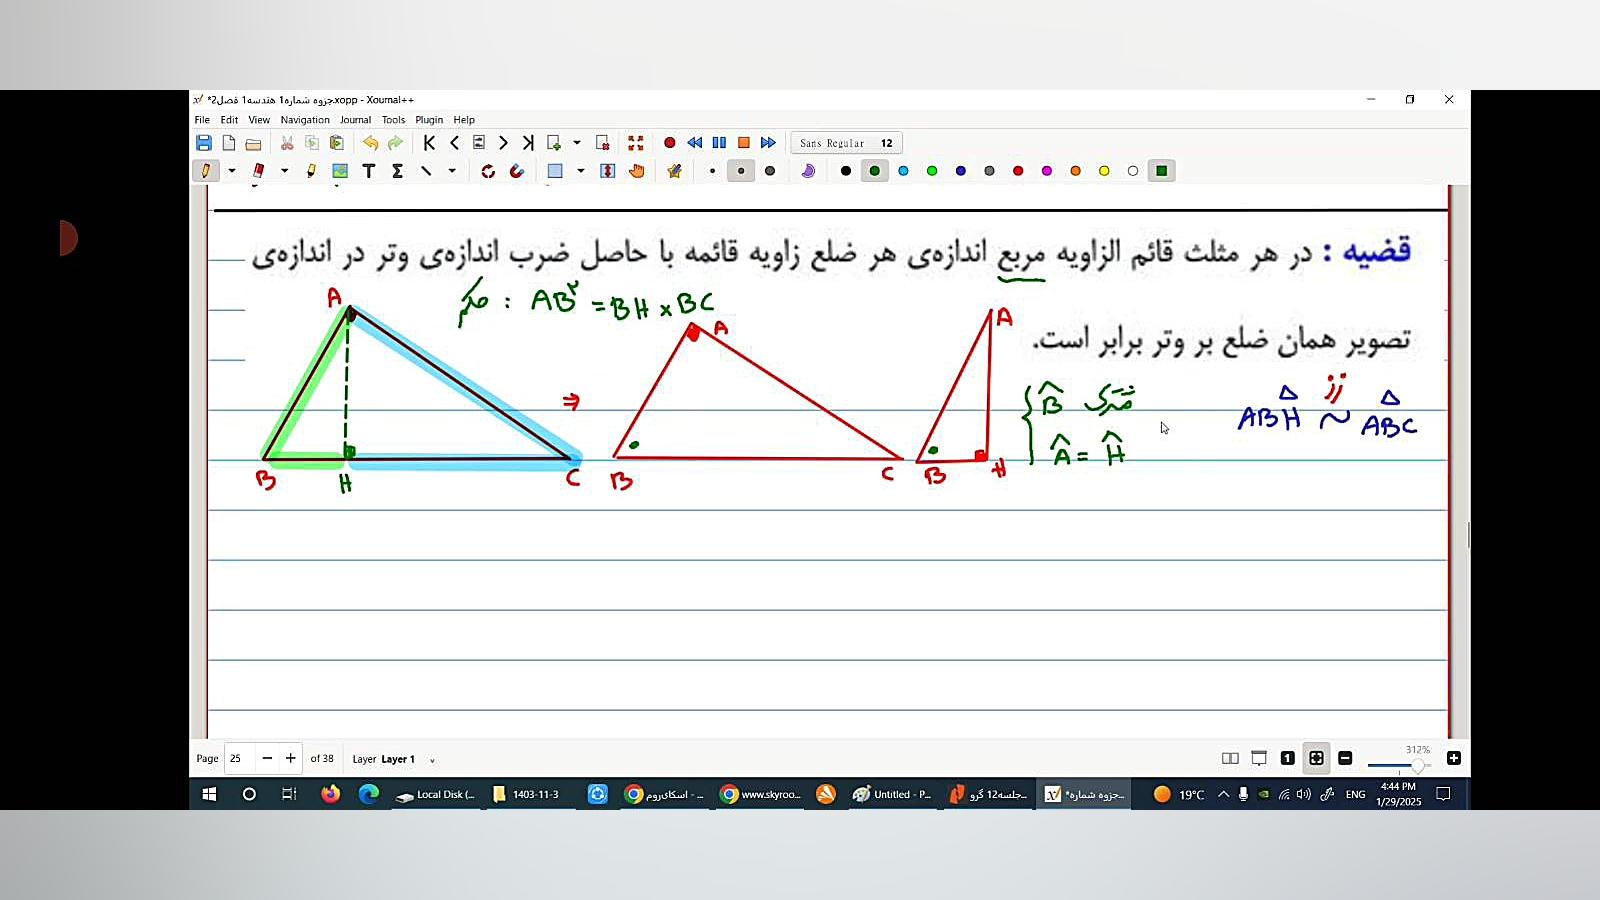 *جزوه شماره1 هندسه1 فصل2.xopp - Xournal++
File Edit View Navigation Journal Tools Plugin Help
Sans Regular 12
قضیه : در هر مثلث قائم الزاویه مربع اندازه‌ی هر ضلع زاویه قائمه با حاصل ضرب اندازه‌ی وتر در اندازه‌ی
حکم : AB² = BH × BC
تصویر همان ضلع بر وتر برابر است.
A
B
H
C
⇒
A
B
C
A
B
H
B̂ مشترک
Â = Ĥ
زز
ABH ~ ABC
Page 25 of 38 Layer Layer 1
312%
Local Disk (...
1403-11-3
اسکای‌روم - ...
www.skyroo...
Untitled - P...
جلسه12 گرو...
*جزوه شماره...
19°C
ENG
4:44 PM
1/29/2025